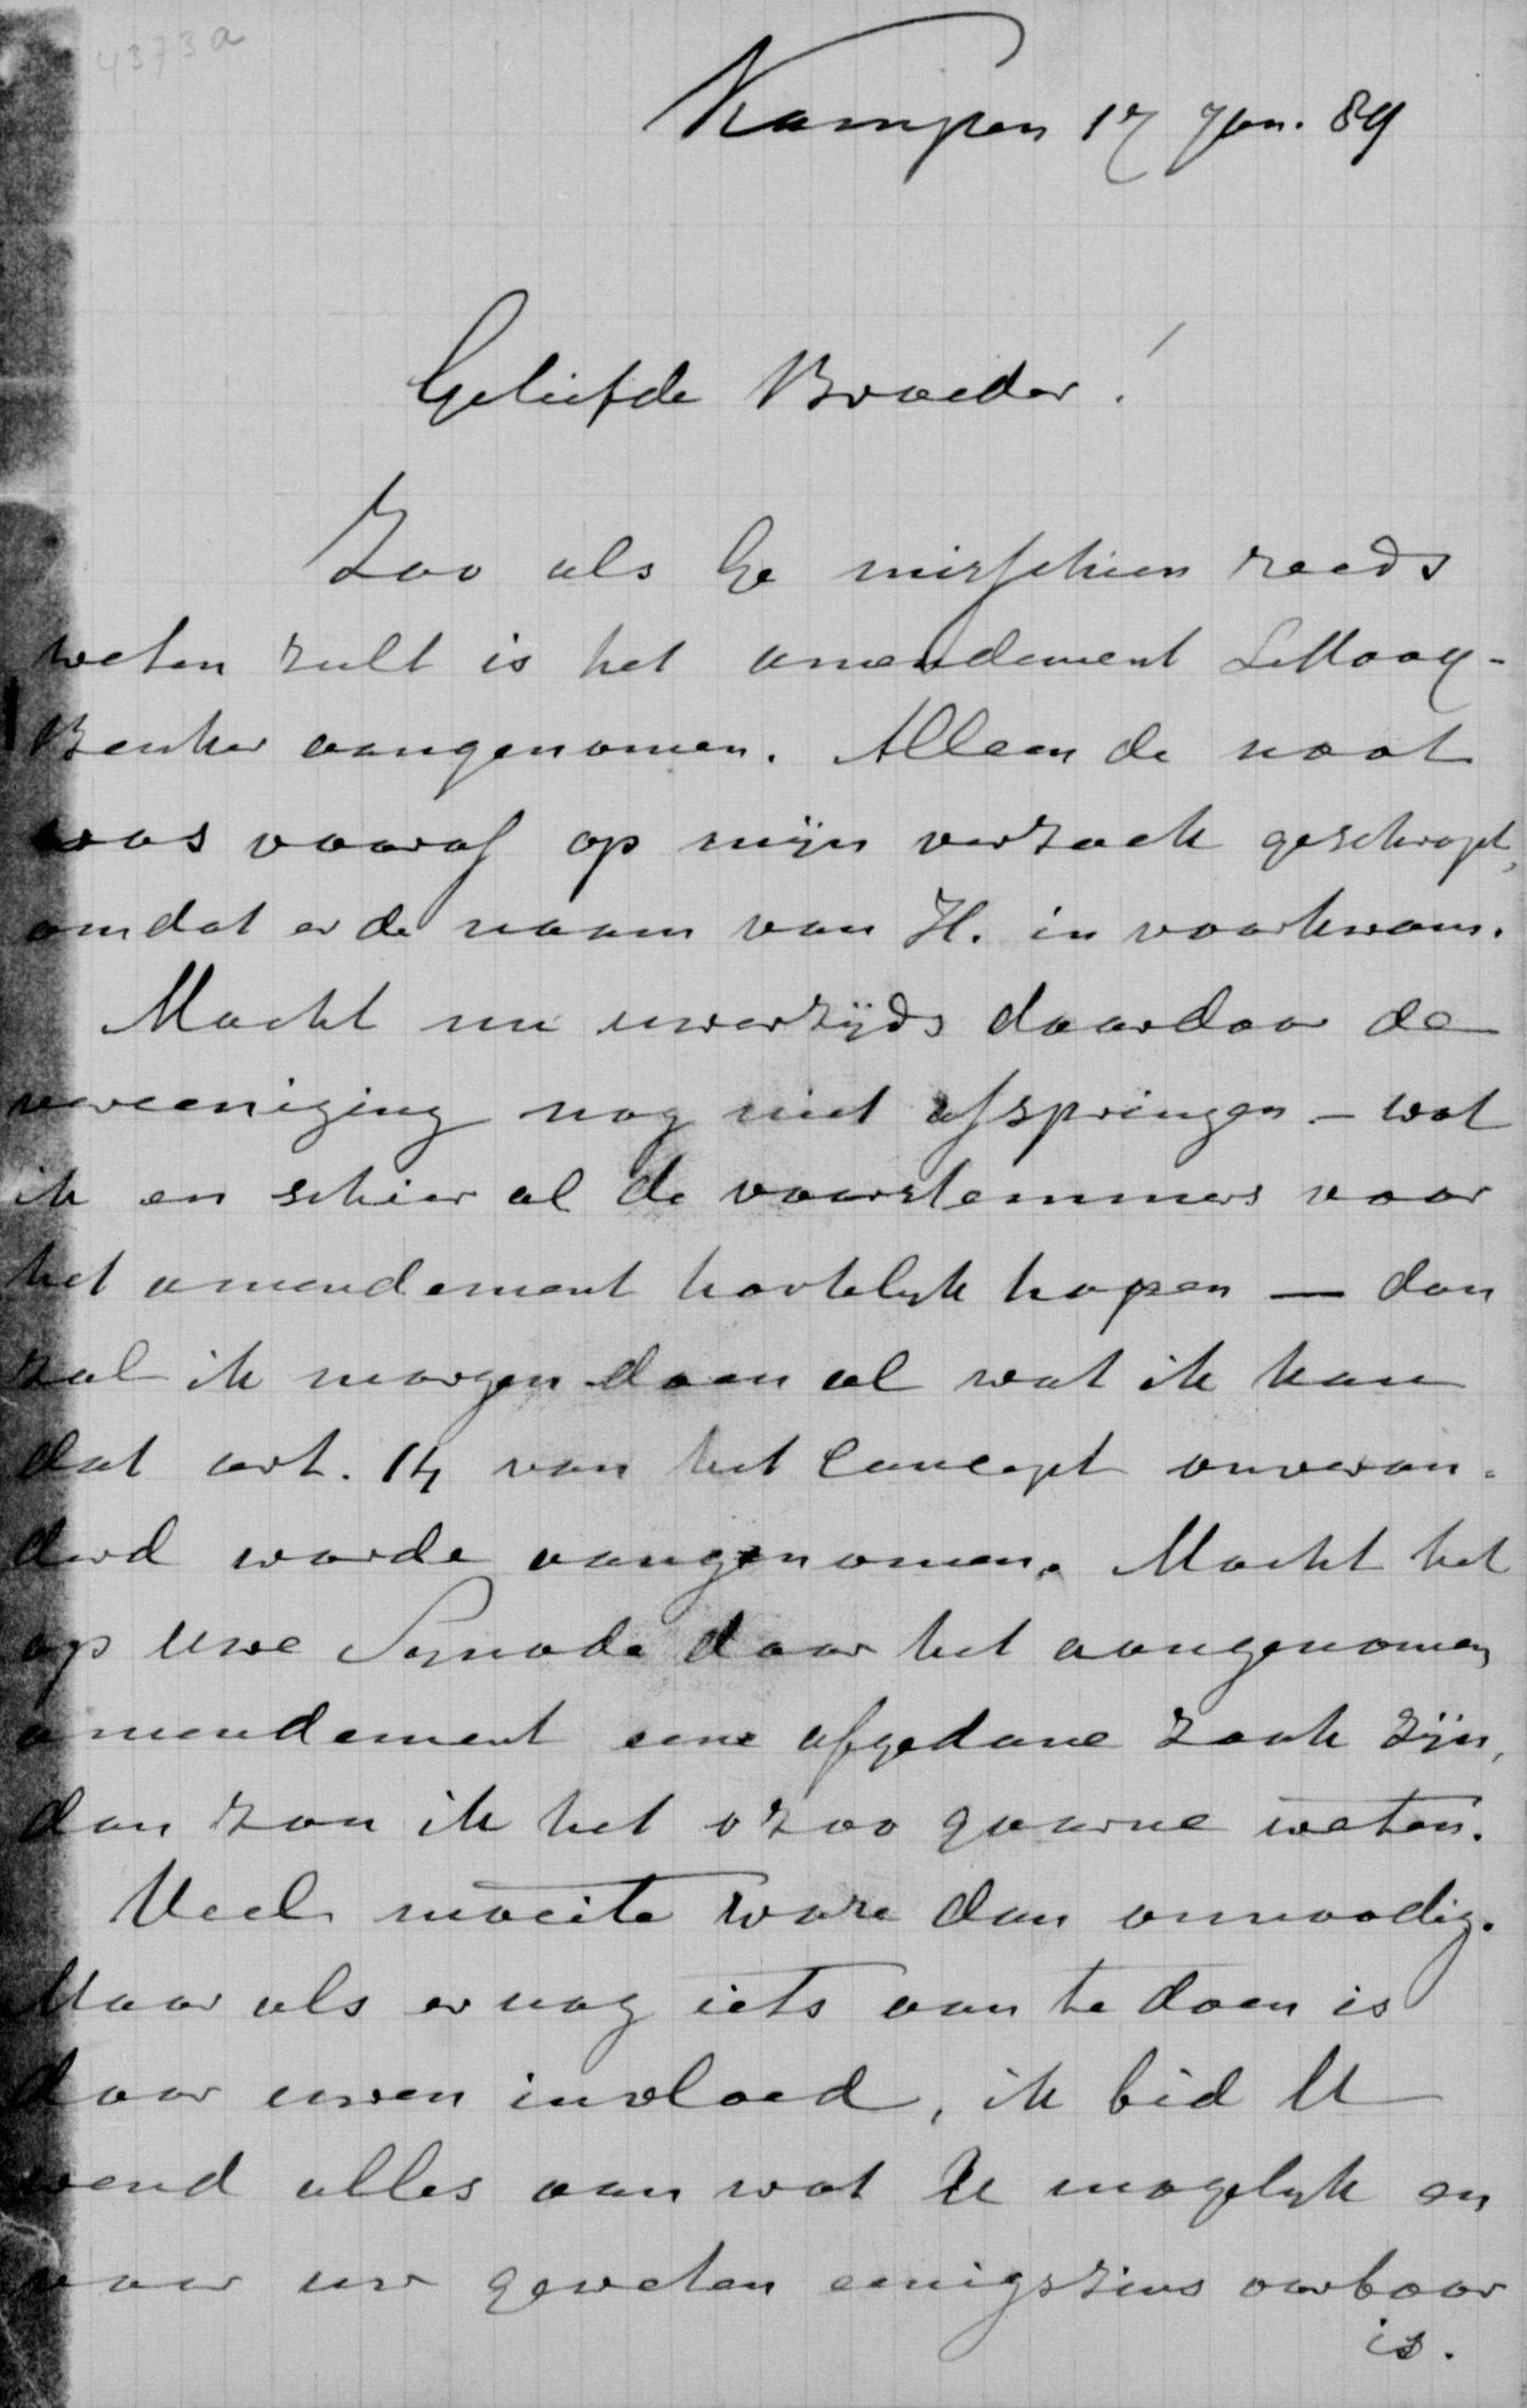 4373a
Kampen 17 Jan. 89
Geliefde Broeder!
Zoo als Ge misschien reeds
weten zult is het amendement Littooy-
Beuker aangenomen. Alleen de noot
was vooraf op mijn verzoek geschrapt,
omdat er de naam van H. in voorkwam.
Mocht nu uwerzijds daardoor de
vereeniging nog niet afspringen - wat
ik en schier al de voorstemmers voor
het amendement hartelijk hopen — dan
zal ik morgen doen al wat ik kan
dat art. 14 van het Concept onveran-
derd worde aangenomen. Mocht het
op uwe Synode door het aangenomen
amendement eene afgedane zaak zijn,
dan zou ik het ozoo gaarne weten.
Veel moeite ware dan onnoodig.
Maar als er nog iets aan te doen is
door uwen invloed, ik bid U
wend alles aan wat U mogelijk en
voor uw geweten eenigszins oorbaar
is.